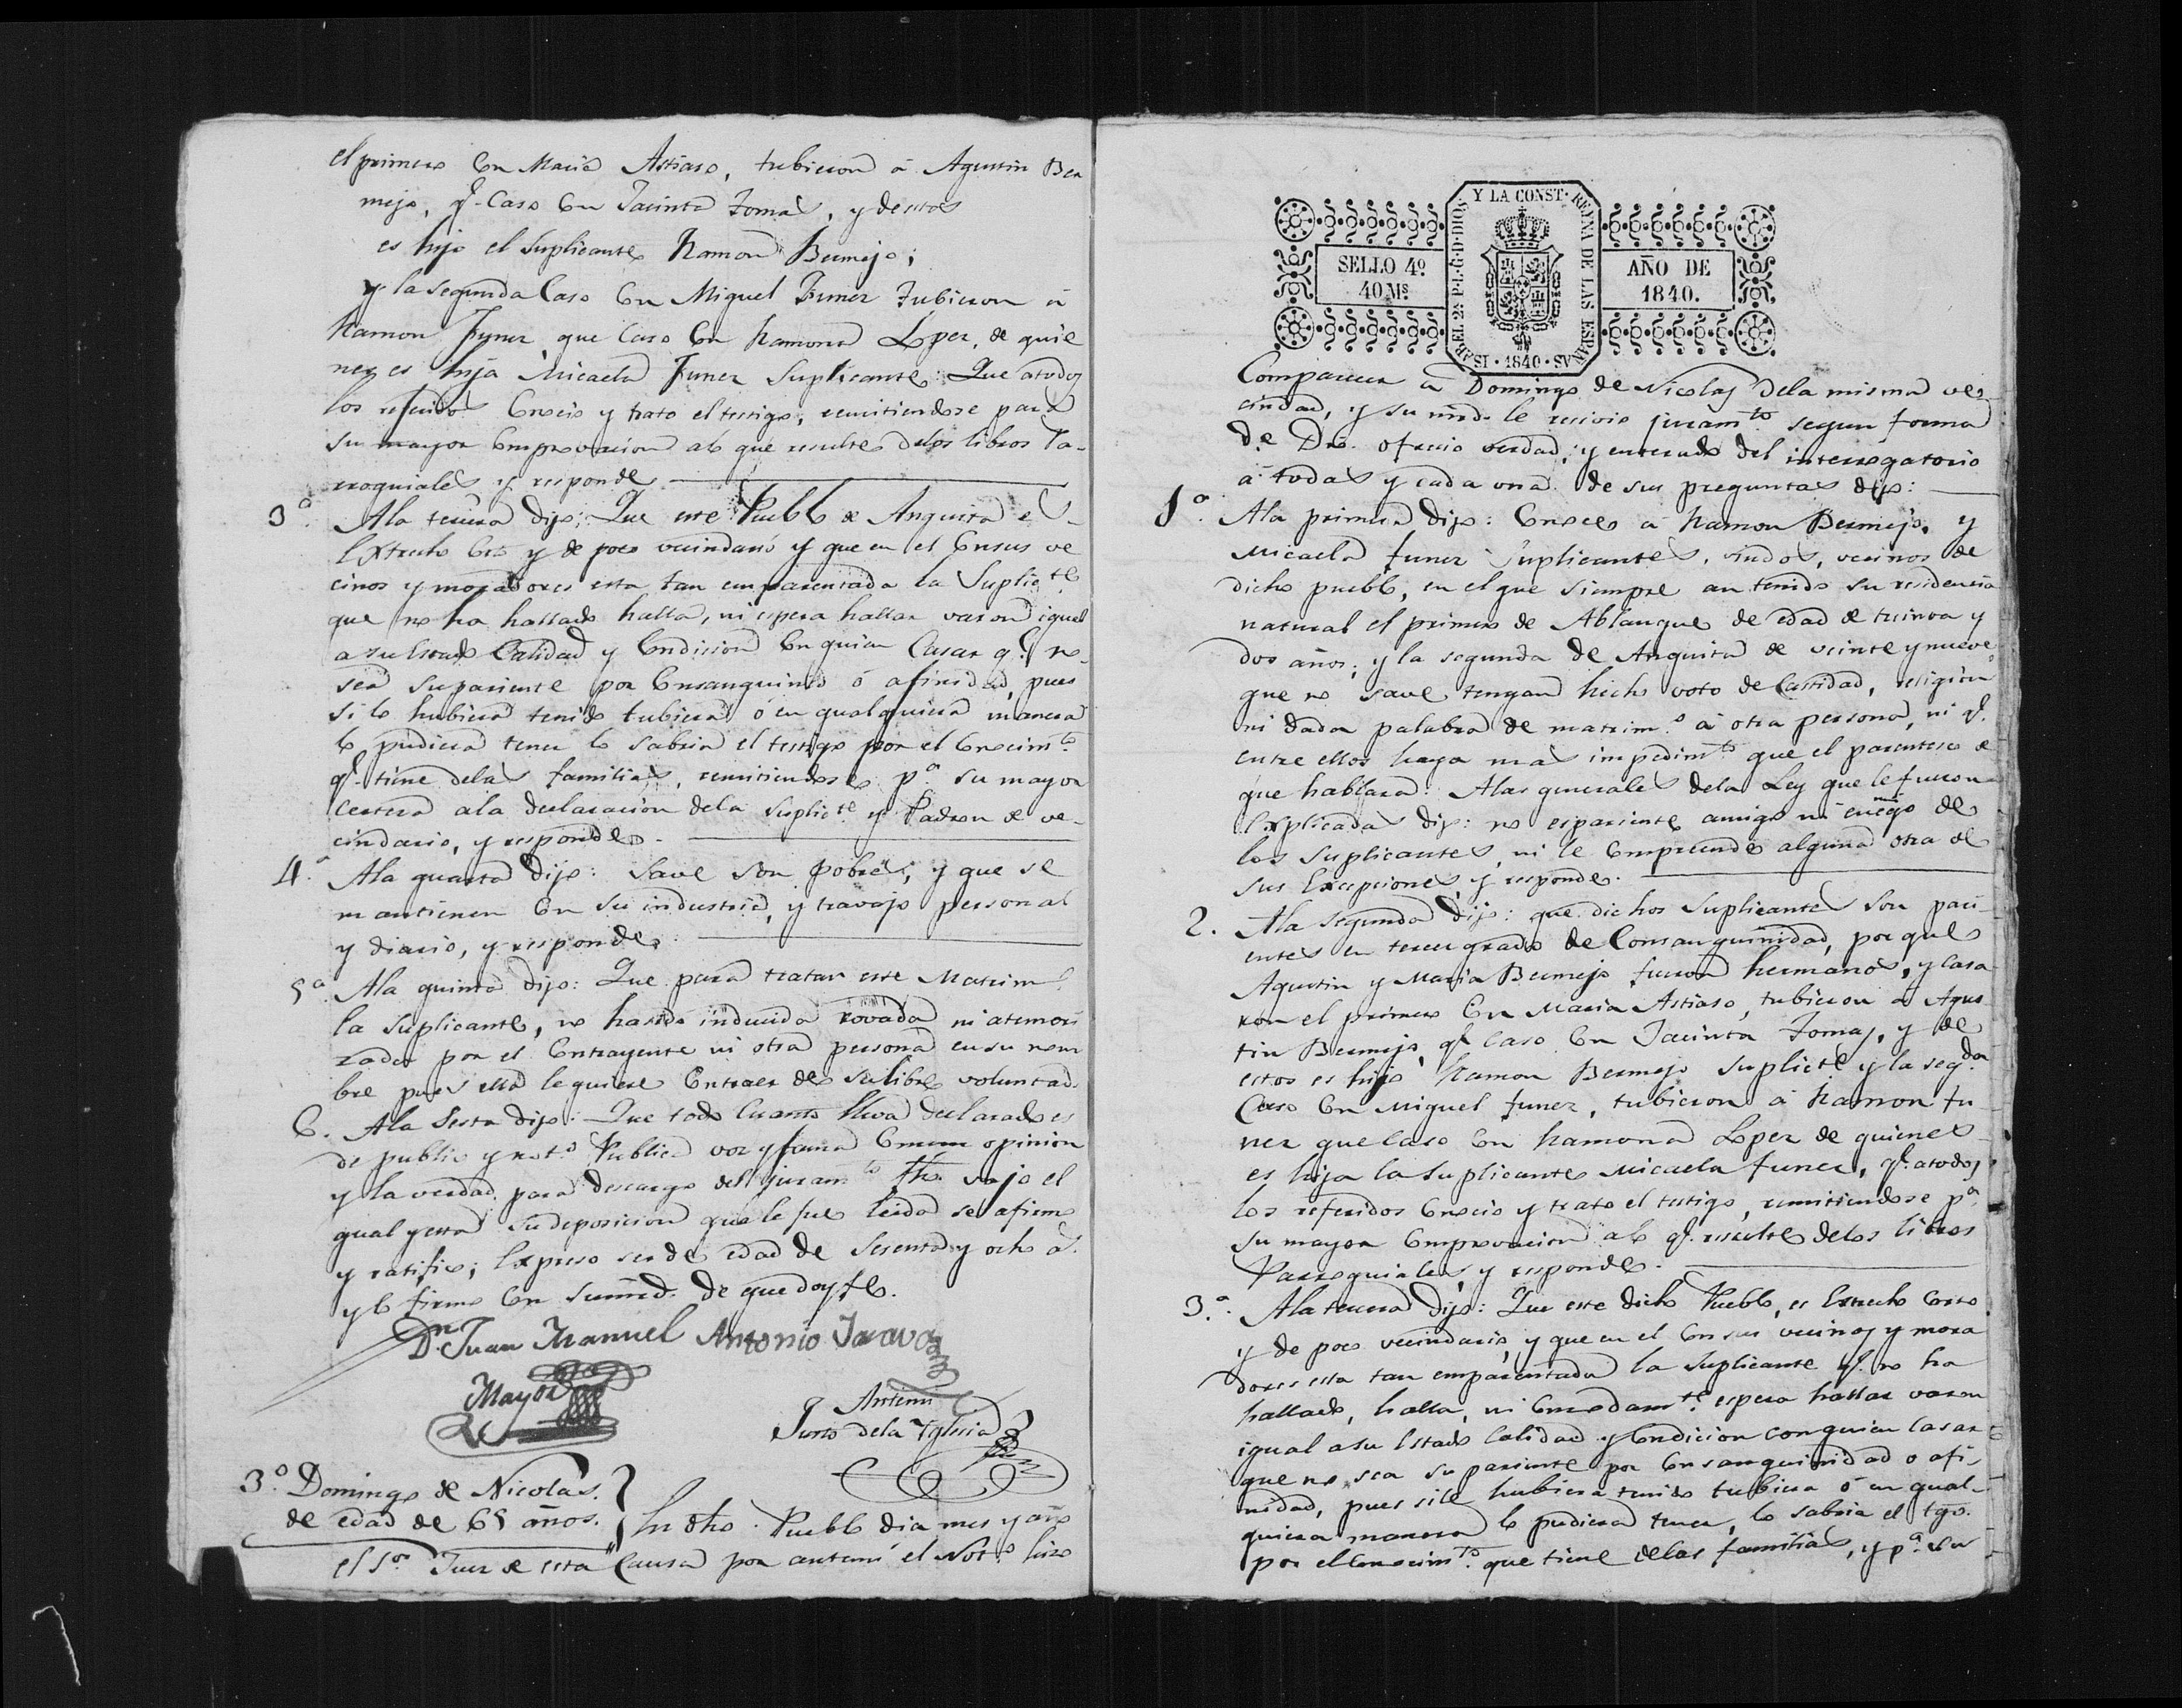 el primero con Maria Astiaso, tubieron á Agustin Ber
mejo, q.e Caso con Jacinta Tomas, y destos
es hijo el Suplicante Ramon Bermejo;
y la segunda Caso Con Miguel Funez tubieron á
Ramon Funez, que Caso Con Ramona Lopez, de quie
nes es hija Micaela Funez Suplicante: Que atodos
los referidos Conocio y trato el testigo, remitiendose para
su mayor Comprovacion alo que resulte delos libros Pa-
rroquiales y responde
3ª. Ala tercera dijo: Que este Pueblo de Anguita es
Extrecho Corto y de poco vecindario y que en él Con sus ve
cinos y moradores esta tan emparentada la Suplic.te
que no ha hallado halla, ni espera hallar varon igual
a su Estado Calidad y Condicion Con quien Casar q.e no
sea su pariente por Consanguinid ó afinidad, pues
si lo hubiera tenido tubiera ó en qualquiera manera
lo pudiera tener lo sabria el testigo por el Conocim.to
q.e tiene delas familias, remitiendose p.a su mayor
certeza ala declaracion dela Suplic.te y Padron de ve-
cindario, y responde.
4ª. Ala quarta dijo: Save son pobres, y que se
mantienen Con su industria, y travajo personal
y diario, y responde.
5ª. Ala quinta dijo: Que para tratar este Matrim.o
la Suplicante, no hasido inducida rovada ni atemori
zada por el Contrayente ni otra persona en su nom
bre pues ella lequiere Contraer de su libre voluntad.
6. Ala Sesta dijo: Que todo Cuanto lleva declarado es
de publico y not.o Publica voz y fama Comun opinion
y la verdad para descargo del juram.to fho. vajo el
qual y esta su deposicion que le fue leida se afirmo
y ratifico; Expreso ser de edad de Sesenta y ocho a.s
y lo firmo Con sumrd. de que doy fe.
D.n Juan Manuel Antonio
Mayor
Antemi
Justo dela Yglesia
3º. Domingo de Nicolas.
de edad de 65 años. En dho. Pueblo dia mes y año
el S.or Juez de esta Causa por antemi el Not.o hizo
Y LA CONST. REYNA DE LAS ESPAÑAS · 1840 · ISABEL 2ª P.L.G.D.DIOS
SELLO 4º
40 Ms.
AÑO DE
1840.
Comparecer á Domingo de Nicolas dela misma ve
cindad, y su mrd. le recivio juram.to segun forma
de Dro. ofrecio verdad; y enterado del interrogatorio
á todas y cada una de sus preguntas dijo:
1ª. Ala primera dijo: Conoce á Ramon Bermejo, y
Micaela Funez Suplicantes, viudos, vecinos de
dicho pueblo, en el que siempre an tenido su residencia
natural el primero de Ablanque de edad de treinta y
dos años; y la segunda de Anguita de veinte y nueve
que no save tengan hecho voto de Castidad, religion
ni dada palabra de matrim.o á otra persona, ni q.e
entre ellos haya mas impedim.to que el parentesco de
que hablara. Alas generales dela Ley que le fueron
Explicadas dijo: no espariente amigo ni enemigo de
los Suplicantes, ni le Comprende alguna otra de
sus Excepciones, y responde.
2. Ala Segunda dijo: que dichos Suplicantes son pari-
entes en tercer grado de Consanguinidad, por que
Agustin y Maria Bermejo fueron hermanos, y Casa
ron el primero Con Maria Astiaso, tubieron a Agus
tin Bermejo q.e Caso Con Jacinta Tomas, y de
estos es hijo Ramon Bermejo Suplic.te y la seg.da
Caso Con Miguel Funez, tubieron á Ramon Fu
nez que Caso Con Ramona Lopez de quienes
es hija la Suplicante Micaela Funez, q.e atodos
los referidos Conocio y trato el testigo, remitiendose p.a
su mayor Comprovacion alo q.e resulte delos libros
Parroquiales, y responde.
3.ª Ala tercera dijo: Que este dicho Pueblo, es Estrecho Corto
y de poco vecindario, y que en el Con sus vecinos y mora
dores esta tan emparentada la Suplicante q.e no ha
hallado, halla, ni Comodam.te espera hallar varon
igual asu Estado Calidad y Condicion con quien Casar
que no sea su pariente por Consanguinidad o afi-
nidad, pues sile hubiera tenido tubiera ó en qual-
quiera manera lo pudiera tener, lo sabria el tgo.
por el Conocim.to que tiene delas familias, y p.a su